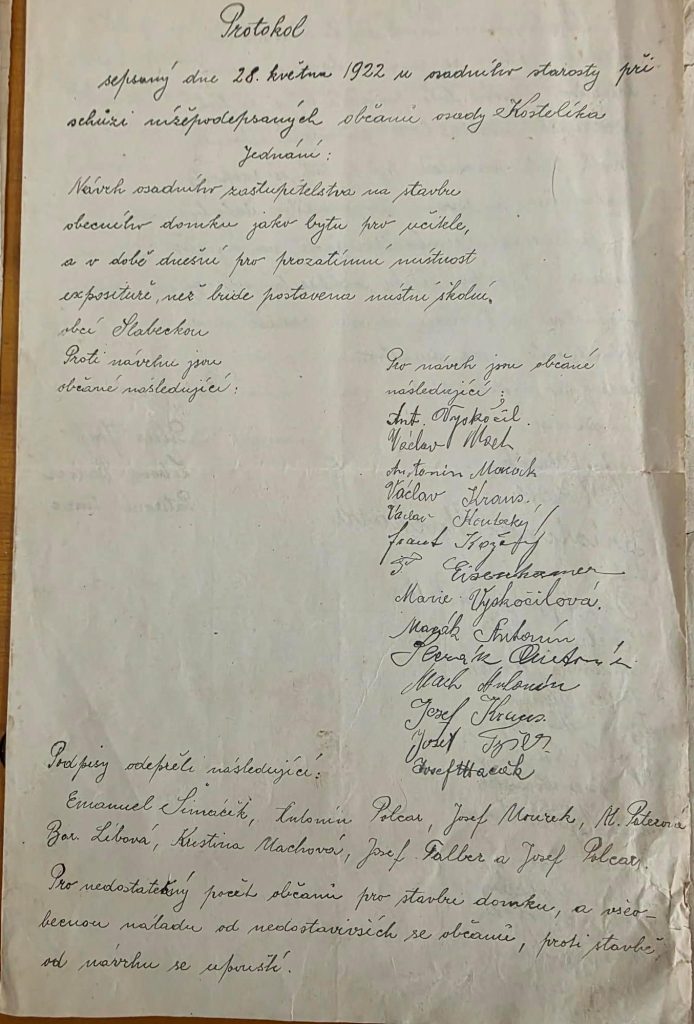 Protokol
sepsaný dne 28. května 1922 u osadního starosty při
schůzi nížepodepsaných občanů osady Kostelíka
Jednání:
Návrh osadního zastupitelstva na stavbu
obecního domku jako bytu pro učitele,
a v době dnešní pro prozatímní místnost
expositurě, než bude postavena místní školní,
obcí Slabeckou
Proti návrhu jsou
občané následující:
Pro návrh jsou občané
následující:
Ant. Vyskočil.
Václav Mach
Antonín Macák
Václav Kraus.
Václav
Frant Kožený
Eisenhamer
Marie Vyskočilová.
Macák Antonín
Antonín
Mach Antonín
Josef Kraus.
Josef
Josef Macák
Podpisy odepřeli následující:
Emanuel Šimáčik, Antonín Polcar, Josef Mourek, M. Paterová
Bar. Líbová, Kristina Machová, Josef Falber a Josef Polcar.
Pro nedostatečný počet občanů pro stavbu domku, a všeo-
becnou náladu od nedostavivších se občanů, proti stavbě,
od návrhu se upouští.